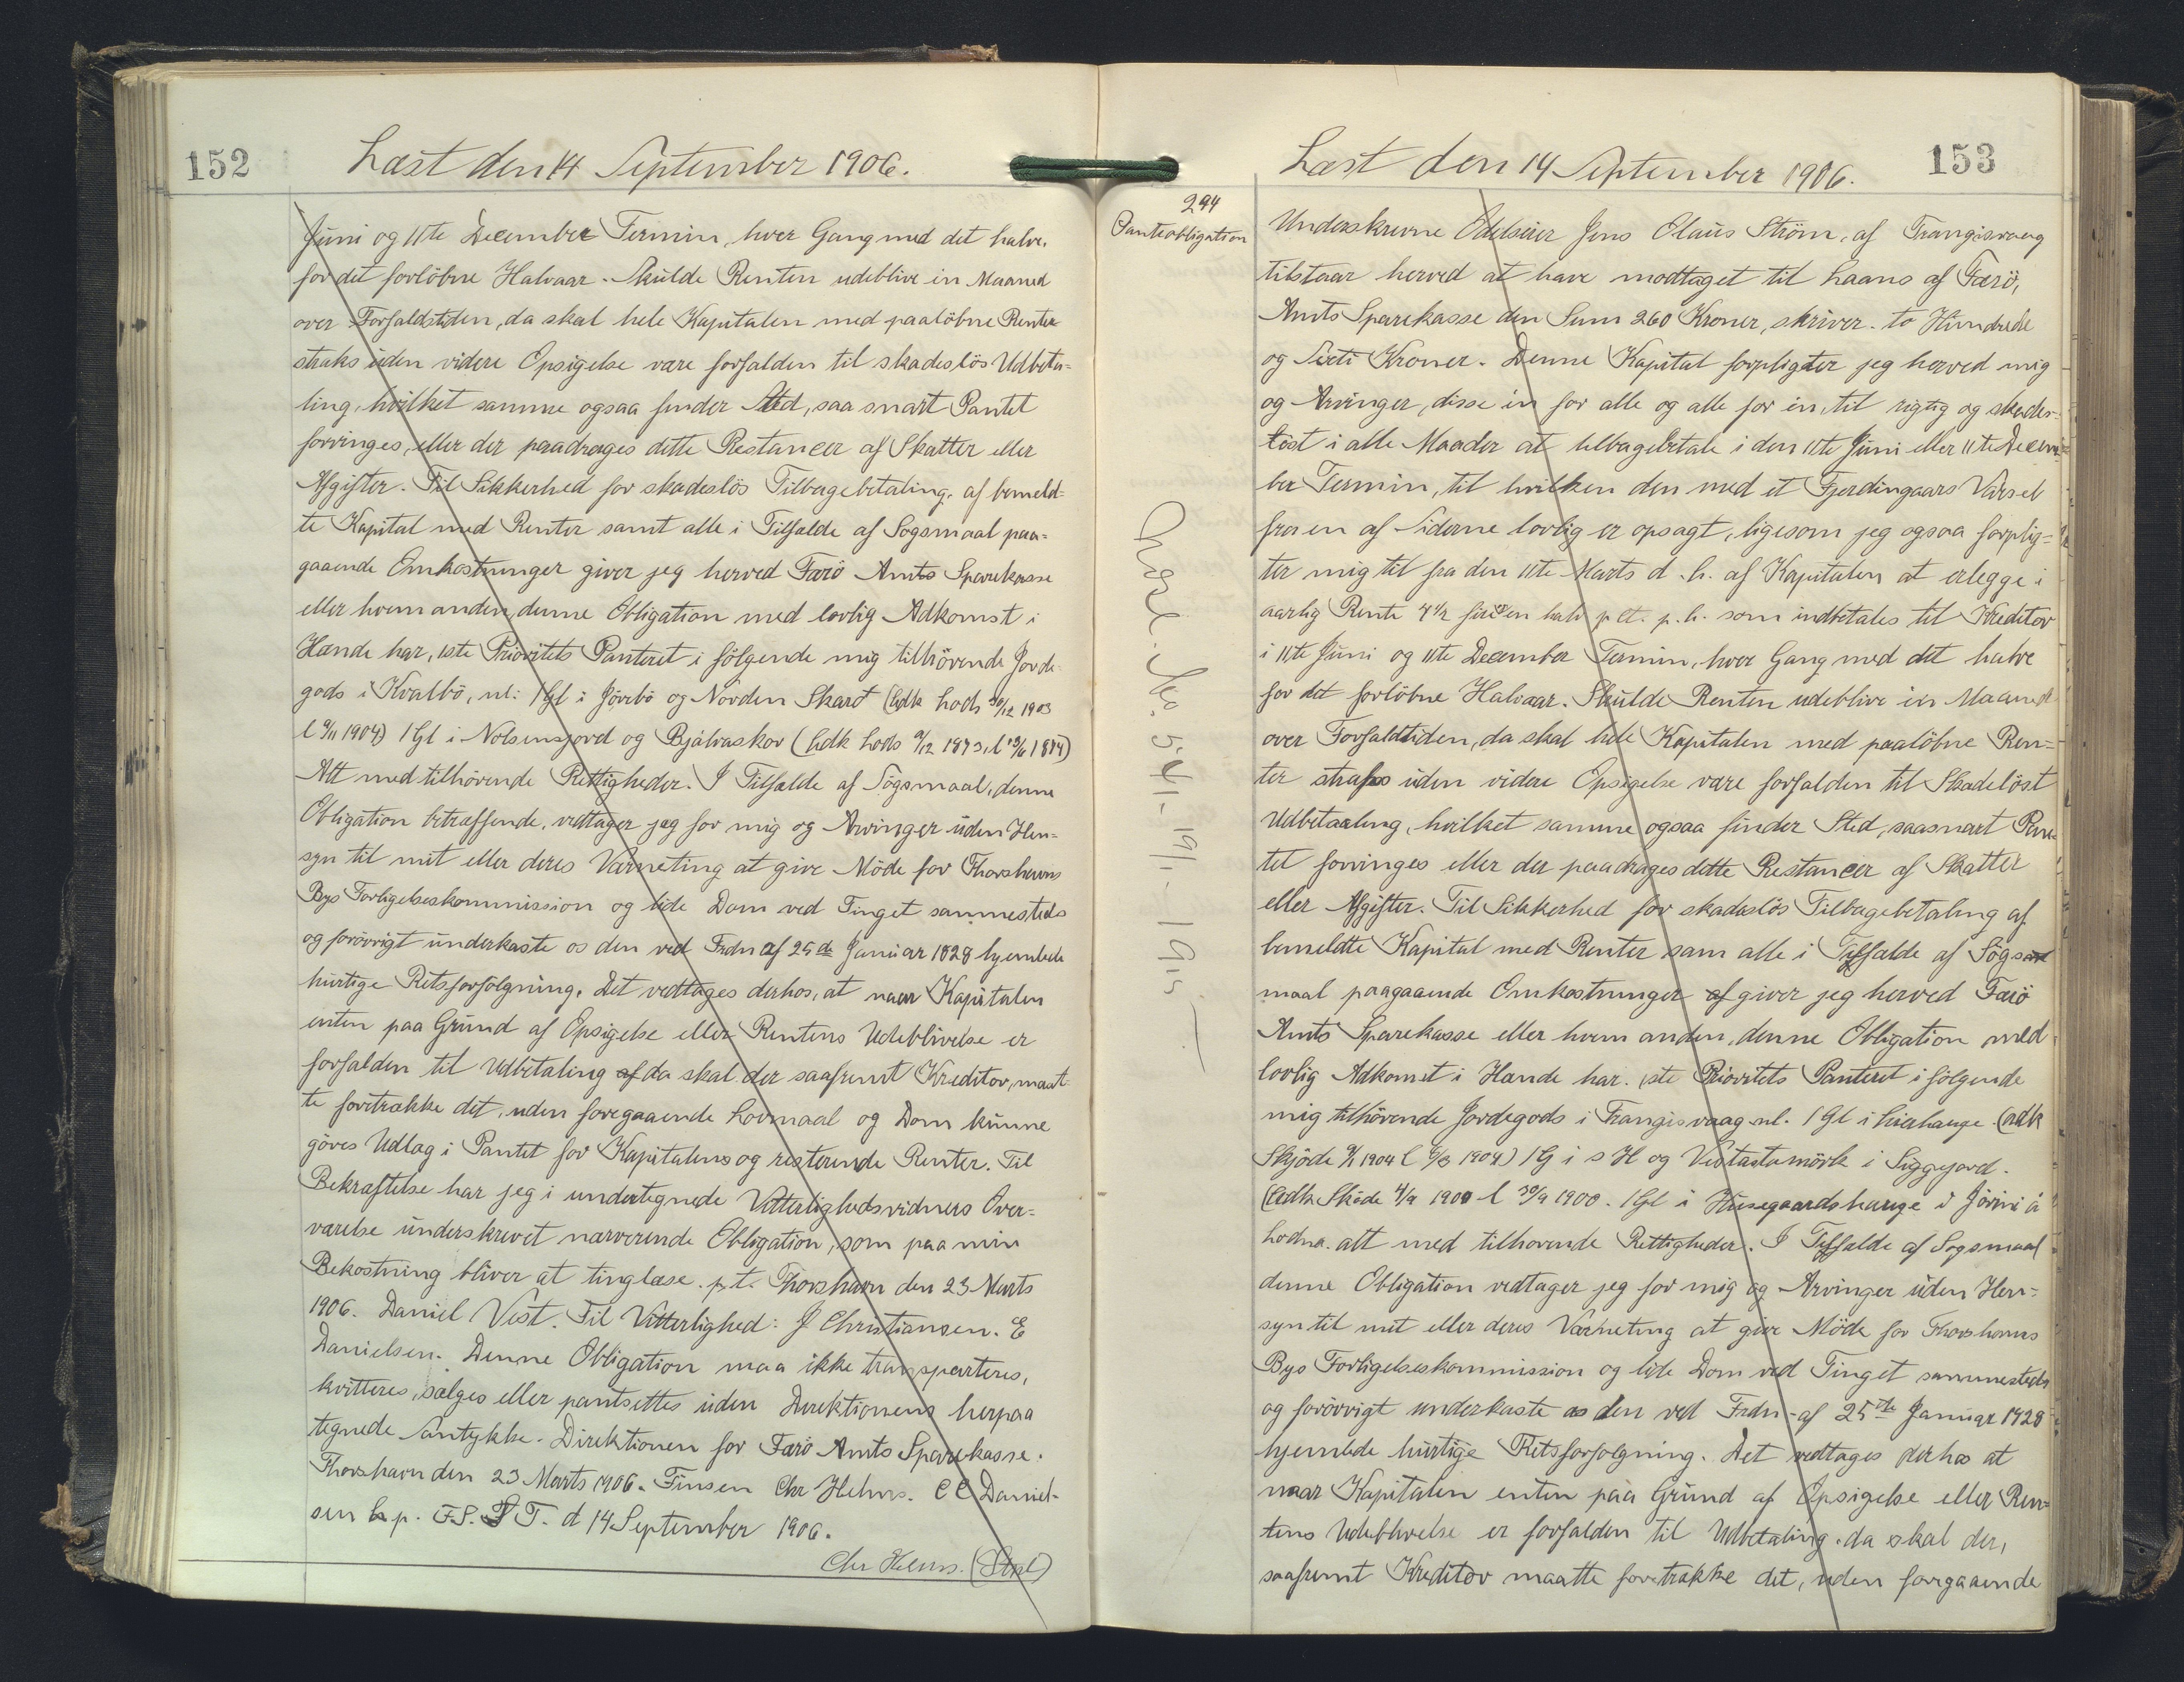 152
Læst den 14 September 1906.
Juni og 11te December Termin, hver Gang med det halve.
for det forløbne Halvaar. Skulde Renten udeblive in Maaned
over Forfaldstiden, da skal hele Kapitalen med paaløbne Renter
straks uden videre Opsigelse være forfalden til skadesløs Udbeta-
ling, hvilket samme ogsaa finder Sted, saa snart Pantet
forringes, eller der paadrages dette Restancer af Skatter eller
Afgifter. Til Sikkerhed for skadesløs Tilbagebetaling, af bemeld-
te Kapital med Renter samt alle i Tilfælde af Søgsmaal paa-
gaaende Omkostninger giver jeg herved Færø Amts Sparekasse
eller hvem anden, denne Obligation med lovlig Adkomst i
Hænde har, 1ste Prioritets Panteret i følgende mig tilhørende Jorde
gods i Kvalbø, nl: 1 Gl i Jørebø og Norden Skard (Adk Lods 30/12 1903
l 9/11 1904) 1 Gl i Nolsensjord og Bjálvaskor (Adk Lods 9/12 1873, l 19/6 1874)
Alt med tilhørende Rettigheder. I Tilfælde af Søgsmaal, denne
Obligation betræffende, vedtager jeg for mig og Arvinger uden Hen-
syn til mit eller deres Værneting at give Møde for Thorshavns
Bys Forligelseskommission og lide Dom ved Tinget sammesteds
og forøvrigt underkaste os den ved Frdn af 25de Januar 1828 hjemlede
hurtige Retsforfølgning. Det vedtages derhos, at naar Kapitalen
enten paa Grund af Opsigelse eller Rentens Udeblivelse er
forfalden til Udbetaling af da skal der saafremt Kreditor, maat-
te foretrække det, uden foregaaende Lovmaal og Dom kunne
gøres Udlæg i Pantet for Kapitalens og resterende Renter. Til
Bekræftelse har jeg i undertegnede Vitterlighedsvidners Over-
værelse underskrevet nærværende Obligation, som paa min
Bekostning bliver at tinglæse. p.t. Thorshavn den 23 Marts
1906. Daniel Vest. Til Vitterlighed: J Christiansen. E
Danielsen. Denne Obligation maa ikke transporteres,
kvitteres, sælges eller pantsættes uden Direktionens herpaa
tegnede Samtykke. Direktionen for Færø Amts Sparekasse.
Thorshavn den 23 Marts 1906. Finsen Chr Helms. C C Daniel-
sen h p. F.S. S T. d 14 September 1906.
Chr Helms. (Stpl)
153
Læst den 14 September 1906.
294
Panteobligation
Underskrevne Odelseier Jens Olaus Strøm, af Trangisvaag
tilstaar herved at have modtaget til Laans af Færø,
Amts Sparekasse den Sum 260 Kroner, skriver. to Hundrede
og Sexti Kroner. Denne Kapital forpligter jeg herved mig
og Arvinger, disse en for alle og alle for en, til rigtig og skades-
løst i alle Maader at tilbagebetale i den 11te Juni eller 11te Decem-
ber Termin, til hvilken den med et Fjerdingaars Varsel
fra en af Siderne lovlig er opsagt, ligesom jeg ogsaa forplig-
ter mig til fra den 11te Marts d. A. af Kapitalen at erlegge i
aarlig Rente 4 1/2 fire en halv p Ct. p. A. som indbetales til Kreditor
i 11te Juni og 11te December Termin, hver Gang med det halve
for det forløbne Halvaar. Skulde Renten udeblive in Maaned
over Forfaldtiden, da skal hele Kapitalen med paaløbne Ren-
ter straks uden videre Opsigelse være forfalden til Skadeløst
Udbetaaling, hvilket samme ogsaa finder Sted, saasnart Pan-
tet forringes eller der paadrages dette Restancer af Skatter
eller Afgifter. Til Sikkerhed for skadesløs Tilbagebetaling af
bemeldte Kapital med Renter sam alle i Tilfælde af Søgs
maal paagaaende Omkostninger af giver jeg herved Færø
Amts Sparekasse eller hvem anden, denne Obligation med
lovlig Adkomst i Hænde har. 1ste Prioritets Panteret i følgende
mig tilhørende Jordegods i Trangisvaag nl. 1 Gl i Liahauge (Adk
Skjøde 1904 l 1904) 1 G i s H og Vestastamørk i Siggejord.
(Adk Skøde 4/9 1900 l 30/9 1900. 1 Gl i Husegaardshauge i Jørini á
Lodna. alt med tilhørende Rettigheder. I Tilfælde af Søgsmaal
denne Obligation vedtager jeg for mig og Arvinger uden Hen-
syn til mit eller deres Værneting at give Møde for Thorshavns
Bys Forligelseskommission og lide Dom ved Tinget sammesteds
og forøvrigt underkaste os den ved Frdn af 25de Januar 1828
hjemlede hurtige Retsforfølgning. Det vedtages derhos at
naar Kapitalen enten paa Grund af Opsigelse eller Ren-
tens Udeblivelse er forfalden til Udbetaling. da skal der,
saafremt Kreditor maatte foretrække det, uden forgaaende